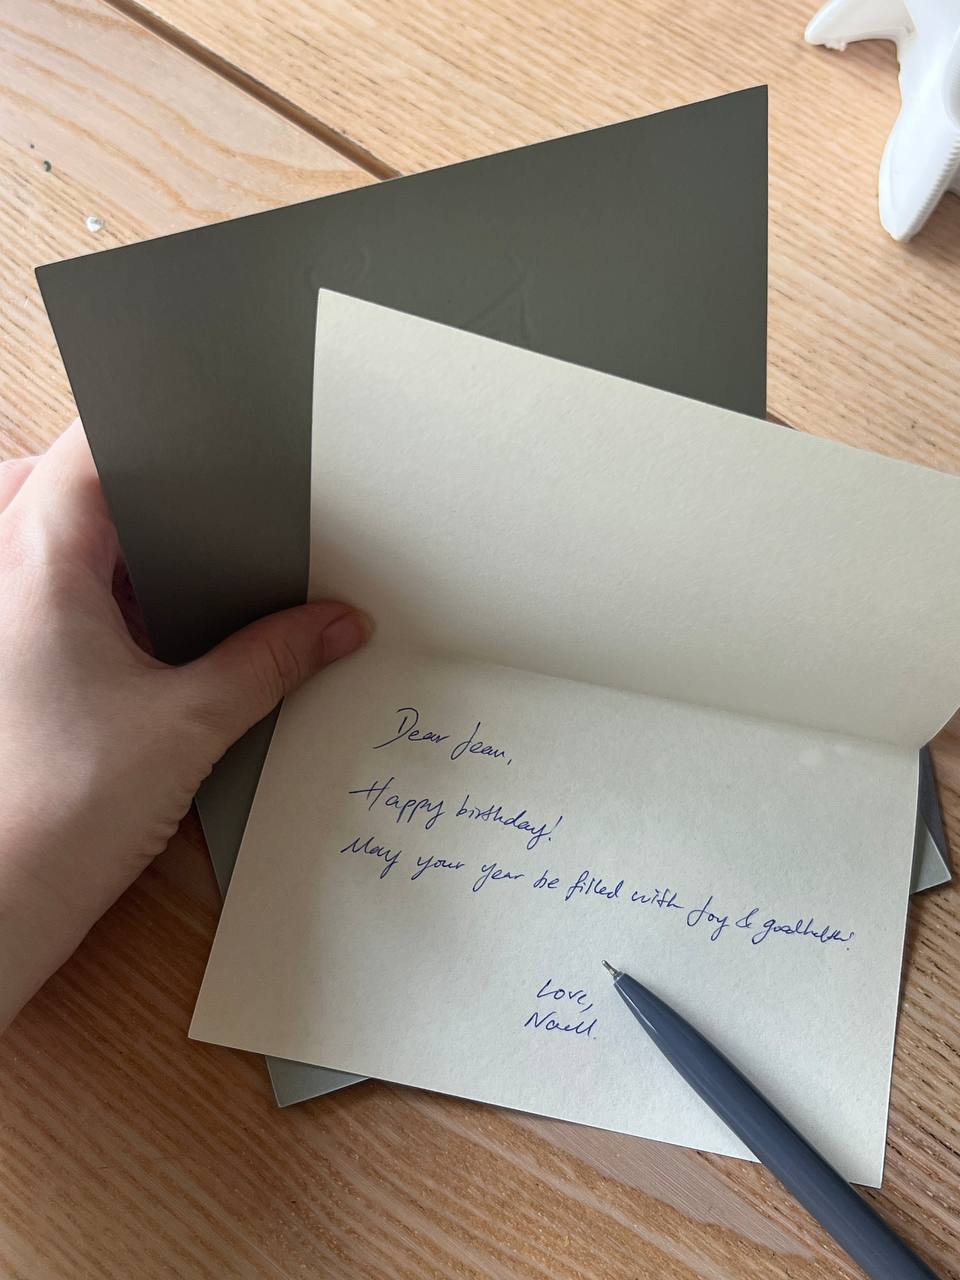 Dear Jean,
Happy birthday!
May your year be filled with joy & good health!
Love,
Naell.